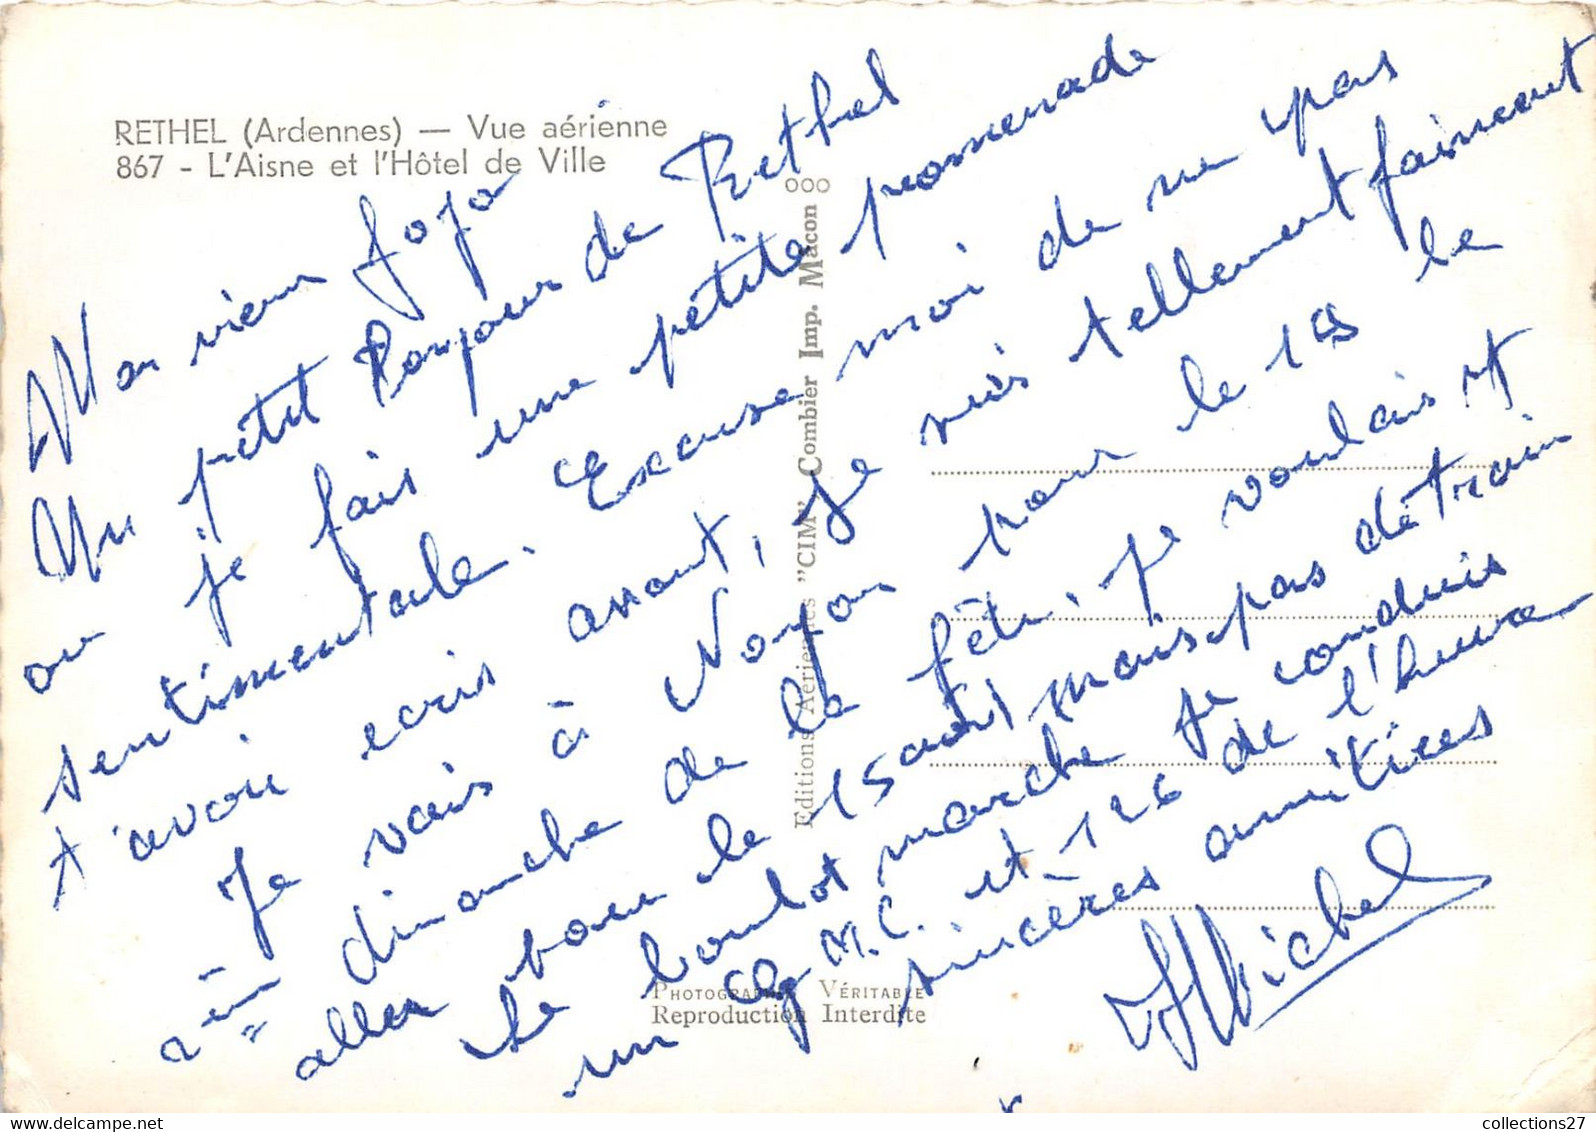 RETHEL (Ardennes) — Vue aérienne
867 - L'Aisne et l'Hôtel de Ville
Mon vieux Jojo
Un petit Bonjour de Rethel
ou je fais une petite promenade
sentimentale. Excuse moi de ne pas
t'avoir ecris avant, je suis tellement faineant
Je vais à Noyon pour le 19 le
2ème dimanche de la fête. Je voulais y
aller pour le 15 août mais pas de train
Le boulot marche je conduis
un C.M.C. et 126 de l'heure
sincères amitiées
Michel
Editions Aériennes "CIM" Combier Imp. Macon
PHOTOGRAPHIE VÉRITABLE
Reproduction Interdite
collections27